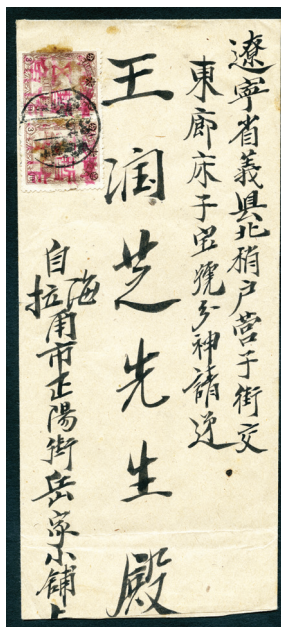 遼寧省義县北稍户营子街交
東廊床子宝號分神請送
王润芝先生殿
自海拉甫市正陽街岳家小鋪